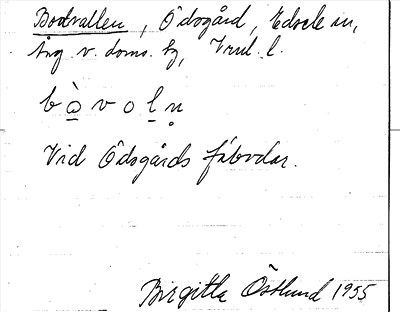 Bodvallen, Ödsgård, Edsele sn,
Ång v. doms. hg, Vnl l.
b à v o l n̥
Vid Ödsgårds fäbodar.
Birgitta Östlund 1955